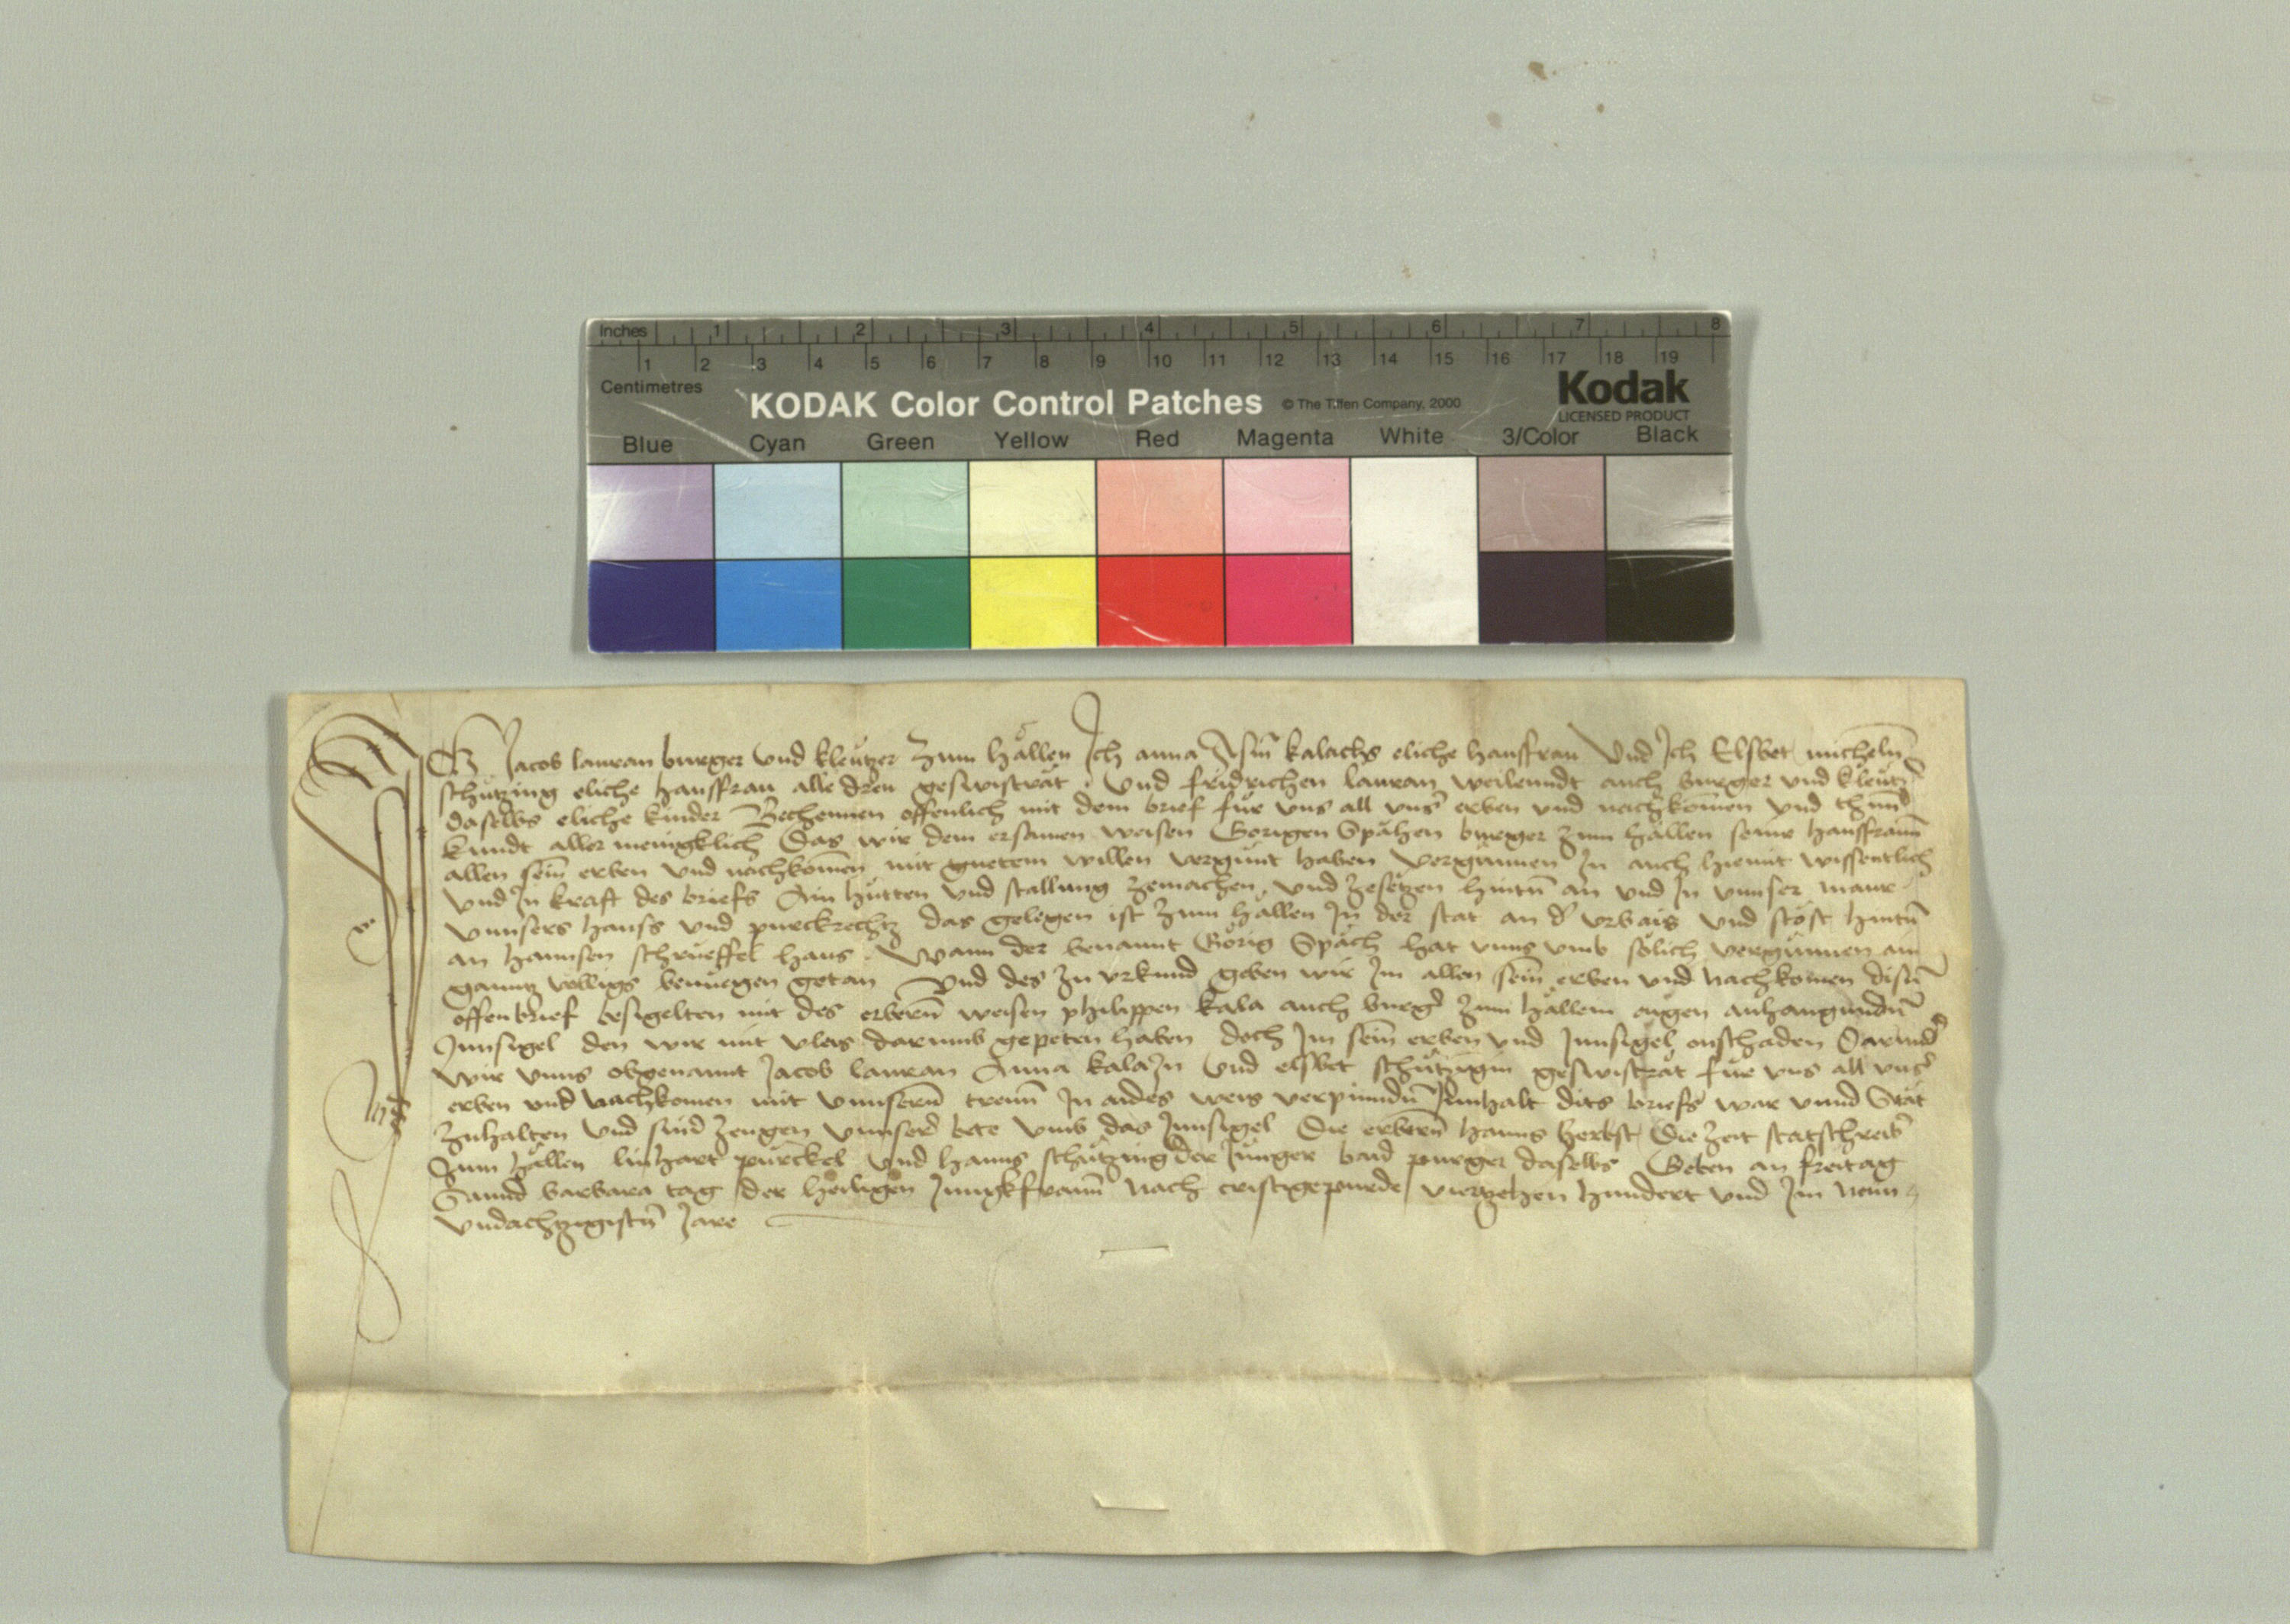 Inches 1 2 3 4 5 6 7 8
1 2 3 4 5 6 7 8 9 10 11 12 13 14 15 16 17 18 19
Centimetres
KODAK Color Control Patches © The Tiffen Company, 2000 Kodak
LICENSED PRODUCT
Blue Cyan Green Yellow Red Magenta White 3/Color Black
Ich Jacob lauran burger vnd kleutzer zum hällen Ich anna kalachs eliche hausfrau Vnd Ich Elsbet micheln
schützing eliche hausfrau alle dreu geswisträt vnd fridrichen lauran weilenndt auch burger vnd kleutz
daselbs eliche kinder Bechennen offenlich mit dem brief für vns all vnser erben vnd nachkomen vnd thund
kundt aller menigklich Das wir dem ersamen weisen Gorigen Spähen burger zum hällen seine hausfraun
allen sein erben vnd nachkomen mit guetem willen vergunt haben Vergunnen In auch hiemit wissentlich
vnd In kraft des briefs Ain hütten vnd stallung zemachen vnd zesetzen hintn an vnd In vnnser maur
vnnsers hauss vnd purckrechtz das gelegen ist zum hällen In der stat an der vrbais vnd stöst hintn
an hannsen schrueffel haus Wann der benannt Görig Späch hat vnns vmb sölich vergunnen ain
ganntz völligs benüegen getan Vnd des zu vrkund geben wir Im allen sein erben vnd nachkomen disn
offenbrief besigelten mit des erbern weisen philippen kala auch burger zum hällein aigen anhangundn
Innsigel den wir mit vleis darumb gepeten haben doch Im sein erben vnd Innsigel onschaden Darund
wir vnns obgenannt Jacob lauran Anna kalaIn vnd elsbet schützigin geswisträt für vns all vnser
erben vnd nachkomen mit vnnsern treun In aides weis verpinndn Innhalt dits briefs war vnnd Stät
zuhalten vnd sind zeugen vnnser bete vmb das Innsigel Die erbern hanns herbst Die zeit statschreiber
zum hällen linhart pürckel vnd hanns schützing der Jünger baid purger daselbs Geben an freitag
Sannd barbara tag der heiligen Jungkfraun Nach cristigepurde viertzehen hundert vnd Im neun
vndachtzigistn Jare